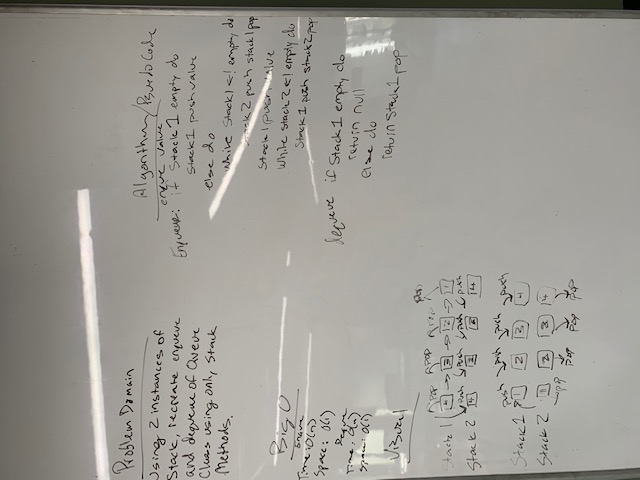 Problem Domain
Using 2 instances of
Stack, recreate enqueue
and dequeue of Queue
Class using only Stack
Methods.
Big O
Time: O(n)
Space: O(1)
Time: O(n)
Space: O(1)
Visual
pop pop pop pop
Stack 1 4 3 2 1
push push push push
Stack 2 4
push push push push
Stack 1 1 2 3 4
Stack 2 1 2 3 4
pop pop pop pop
Algorithm/PsuedoCode
enqueue value
Enqueue: if Stack 1 empty do
Stack 1 push value
else do
while Stack1 <! empty do
Stack 2 push stack 1 pop
Stack 1 push value
While stack 2 <! empty do
Stack 1 push stack2 pop
dequeue if Stack 1 empty do
return null
else do
return Stack1 pop